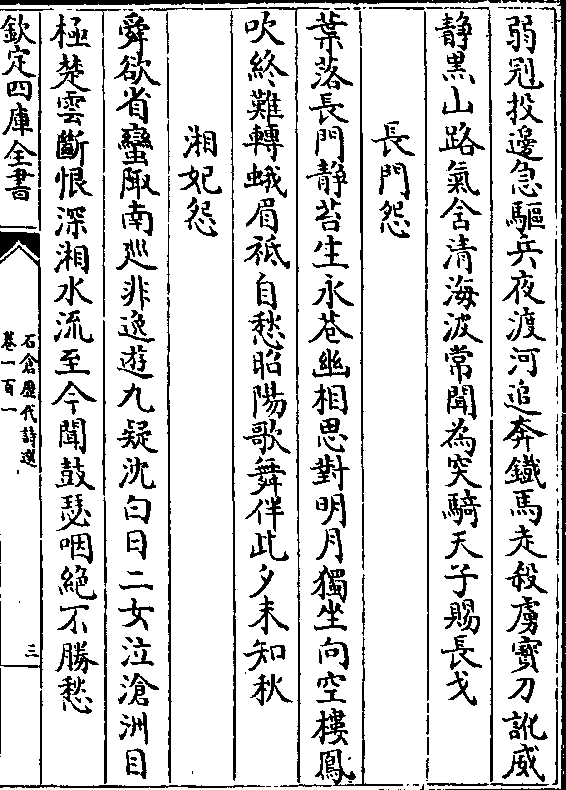 弱冠投邊急驅兵夜渡河追奔鐵馬走殺虜寳刀訛威
静黒山路氣含清海波常聞為突騎天子賜長戈
長門怨
葉落長門静苔生永巷幽相思對明月獨坐向空樓鳳
吹終難轉蛾眉祗自愁昭陽歌舞伴此夕未知秋
湘妃怨
舜欲省蠻陬南廵非逸遊九疑沈白日二女泣滄洲目
極楚雲斷恨深湘水流至今聞鼓瑟咽絶不勝愁
欽定四庫全書
石倉歷代詩選
卷一百一
三